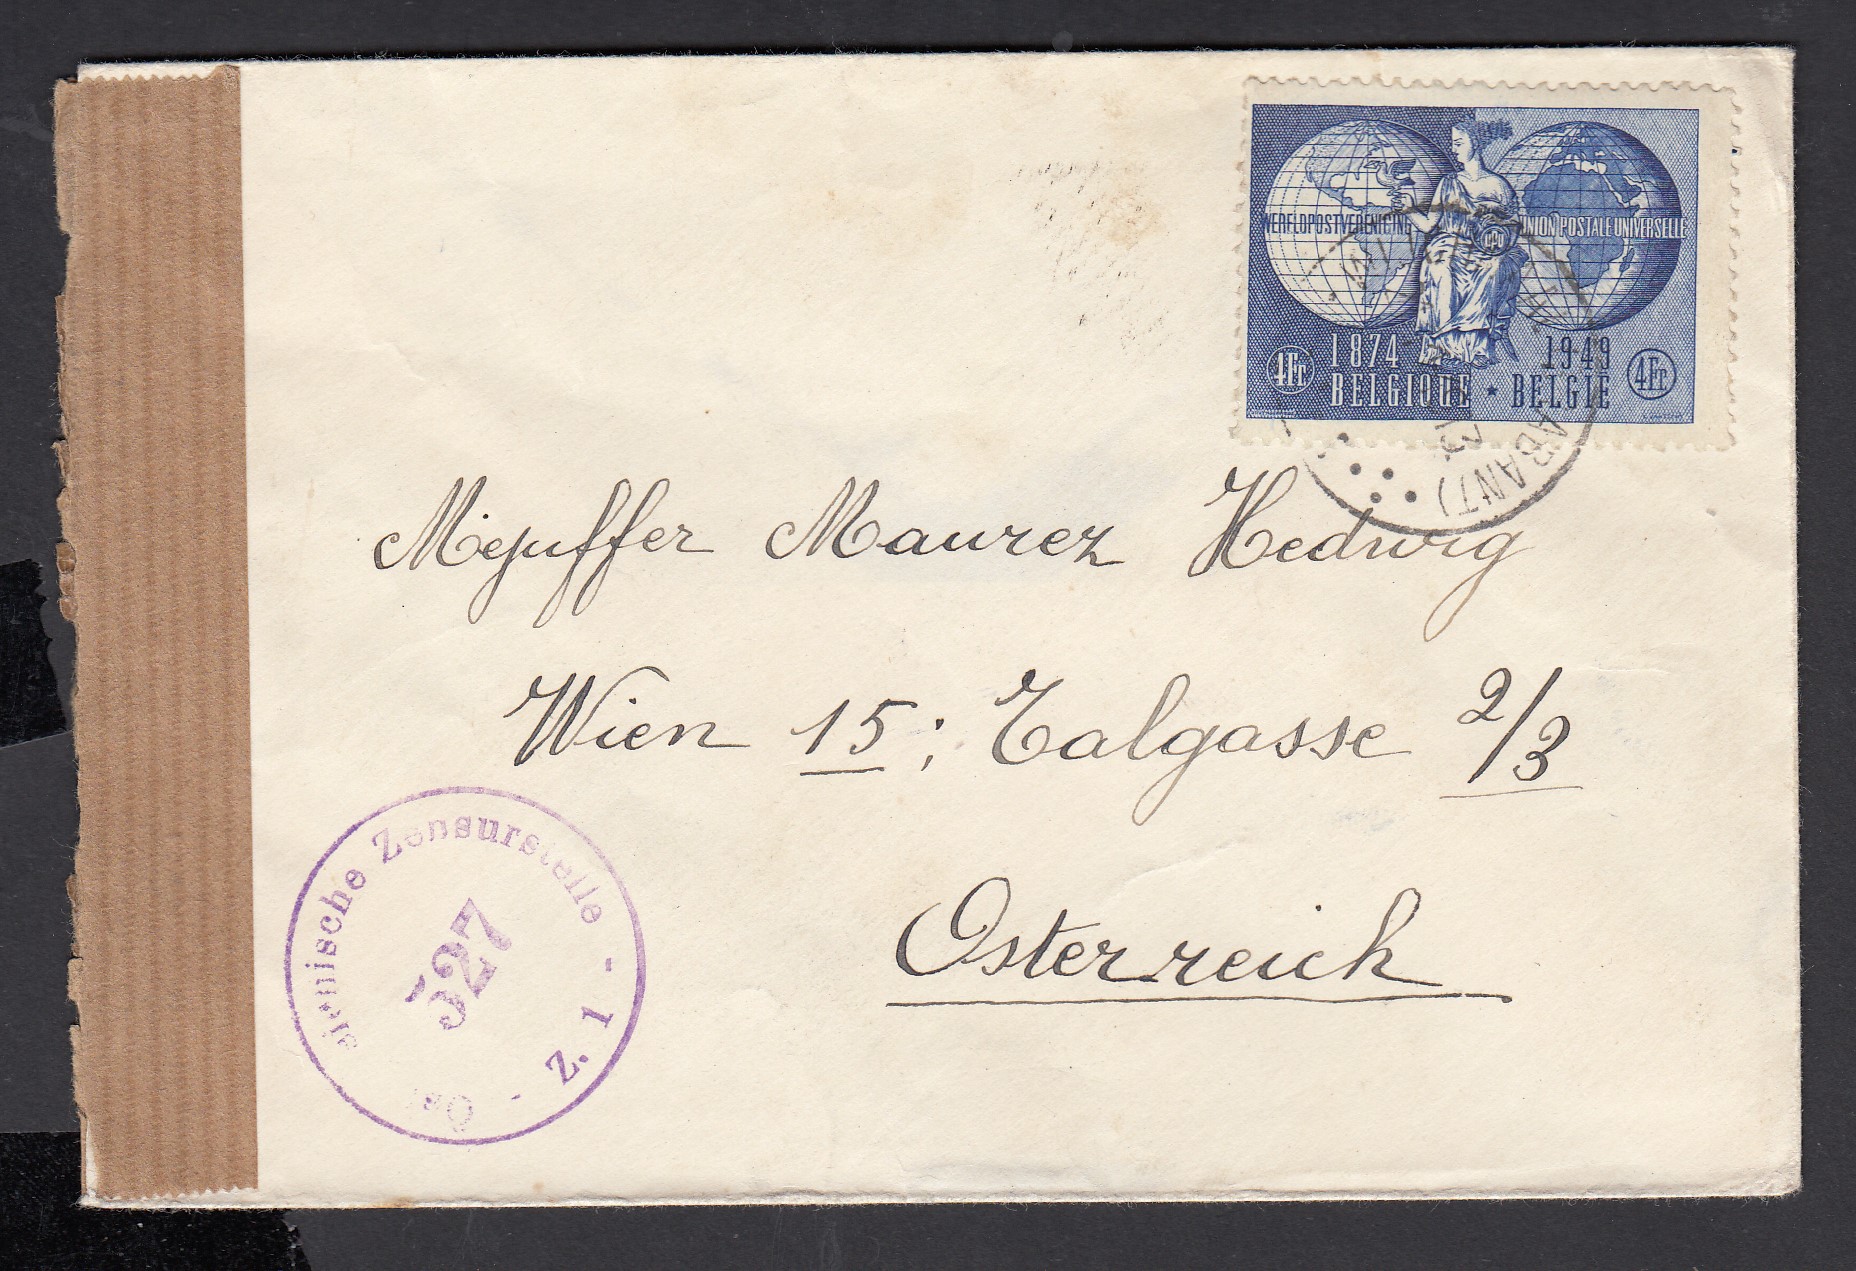 WERELDPOSTVEREENIGING UNION POSTALE UNIVERSELLE
UPU
1874 1949
4Fr BELGIQUE * BELGIË 4Fr
ABANT)
Mejuffer Maurez Hedwig
Wien 15; Talgasse 2/3
Österreich
Zensurstelle -
327
Z. 1 -